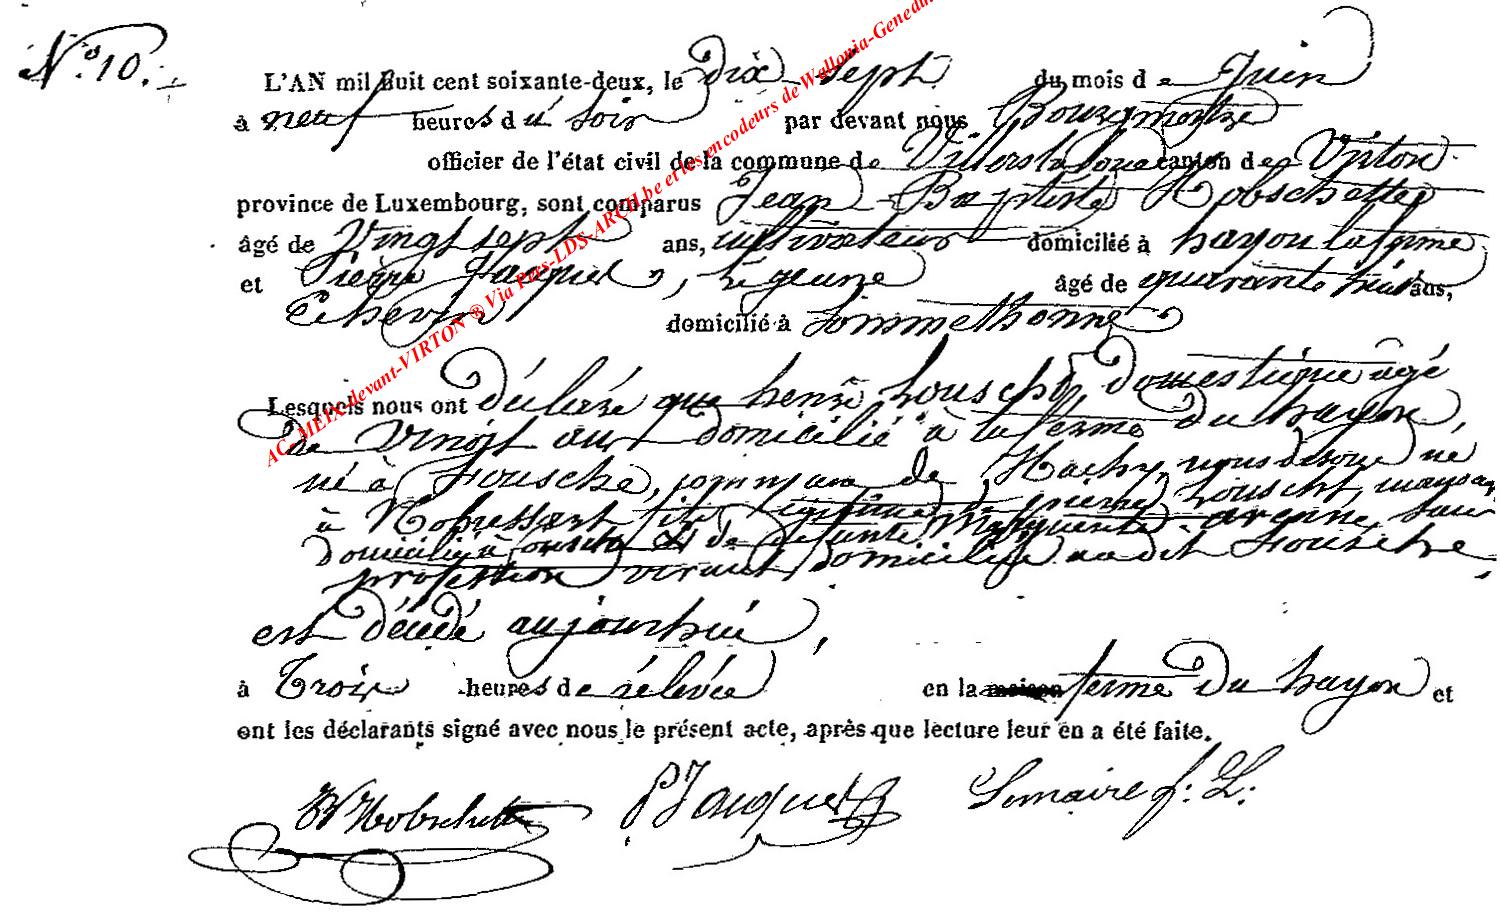 N.° 10.
L'AN mil huit cent soixante-deux, le dix sept du mois de Juin
à neuf heures du soir par devant nous Bourgmestre
officier de l'état civil de la commune de Villers la loue canton de Virton
province de Luxembourg, sont comparus Jean Baptiste Hobscheitte
âgé de Vingt sept ans, cultivateur domicilié à hayon la ferme
et Pierre Jacquet, le jeune âgé de quarante trois ans,
Echevin domicilié à Sommethonne
Lesquels nous ont déclaré que henri domestique âgé
de vingt ans domicilié à la ferme du hayon,
né à Fousche, commune de Hachy, nous
à Nobressart fils légitime de pierre
domicilié à et de défunte Marguerite sans
profession vivant domiciliée au dit Fousche
est décédé aujourhui,
à Trois heures de rélevée en la maison ferme du hayon et
ont les déclarants signé avec nous le présent acte, après que lecture leur en a été faite.
PJacquet Lemaire f. L.
AC-MEIX-devant-VIRTON ® Via Pers-LDS-ARCH.be et les encodeurs de Wallonia-Genedu